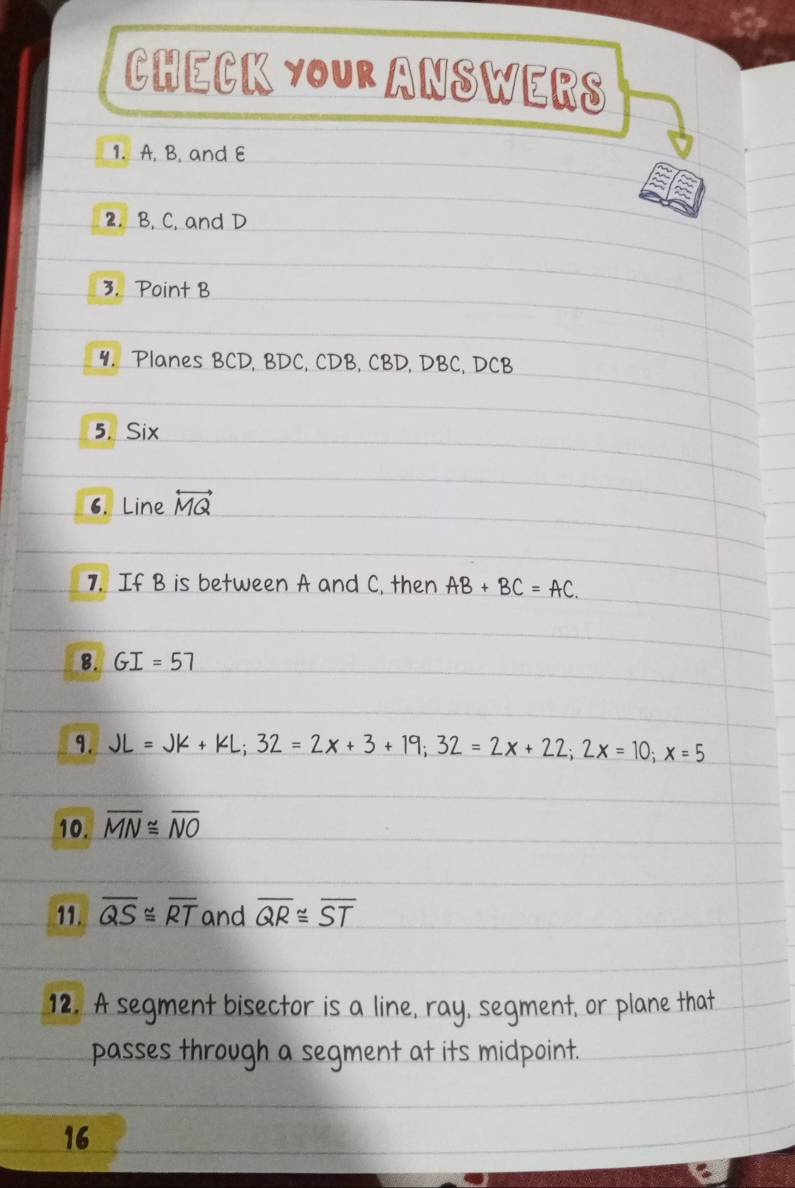 CHECK YOUR ANSWERS
1. A, B, and E
2. B, C, and D
3. Point B
4. Planes BCD, BDC, CDB, CBD, DBC, DCB
5. Six
6. Line \overleftrightarrow{MQ}
7. If B is between A and C, then AB + BC = AC.
8. GI = 57
9. JL = JK + KL; 32 = 2x + 3 + 19; 32 = 2x + 22; 2x = 10; x = 5
10. \overline{MN} ≅ \overline{NO}
11. \overline{QS} ≅ \overline{RT} and \overline{QR} ≅ \overline{ST}
12. A segment bisector is a line, ray, segment, or plane that
passes through a segment at its midpoint.
16